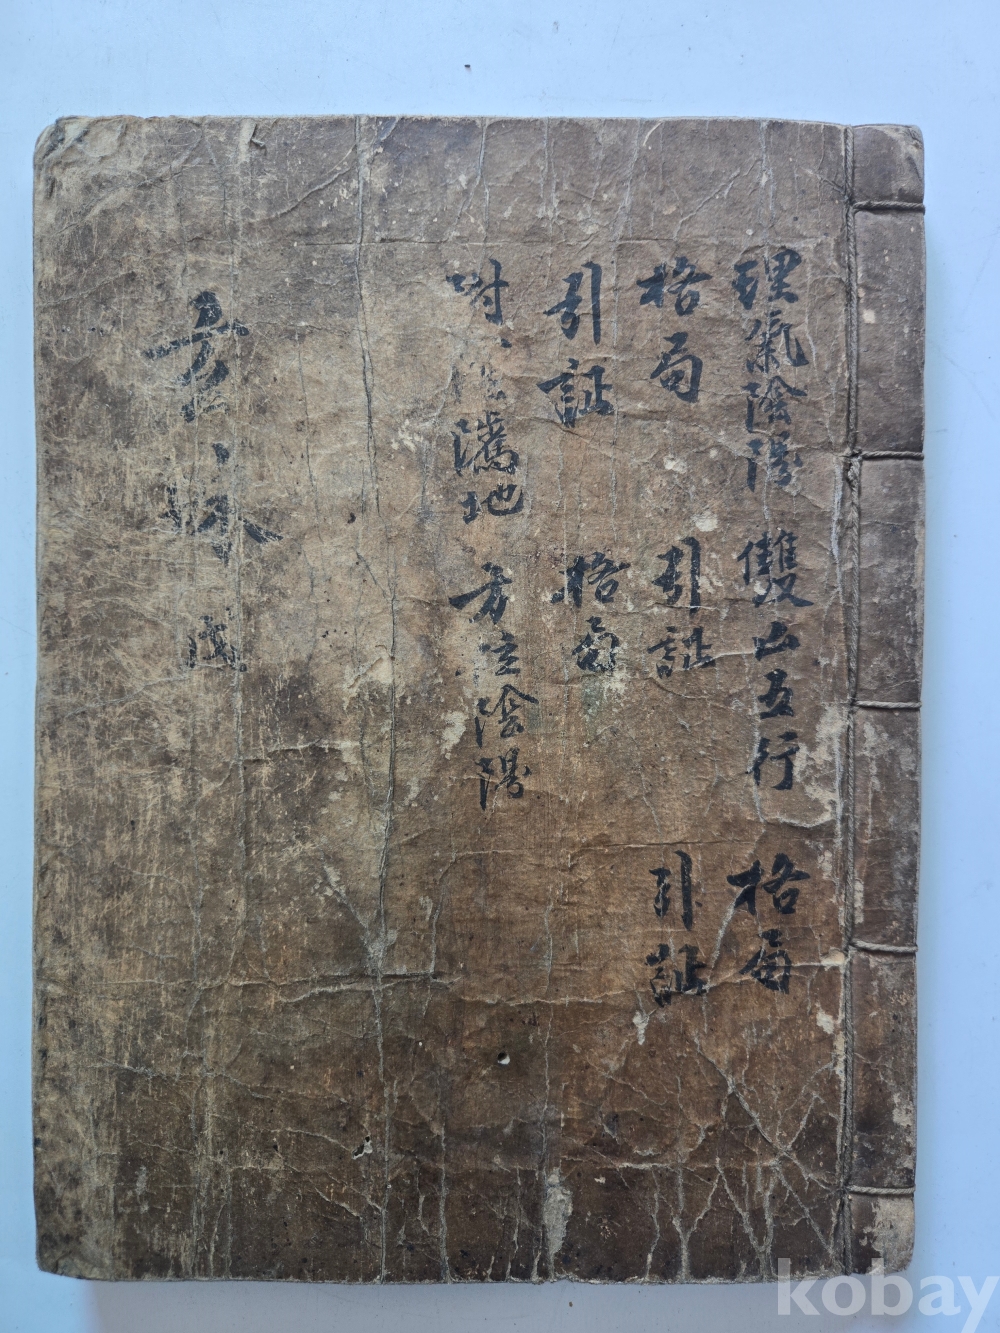 理氣陰陽 雙山五行 格局
格局 引証 引証
引証 格局
附 地 方位陰陽
kobay